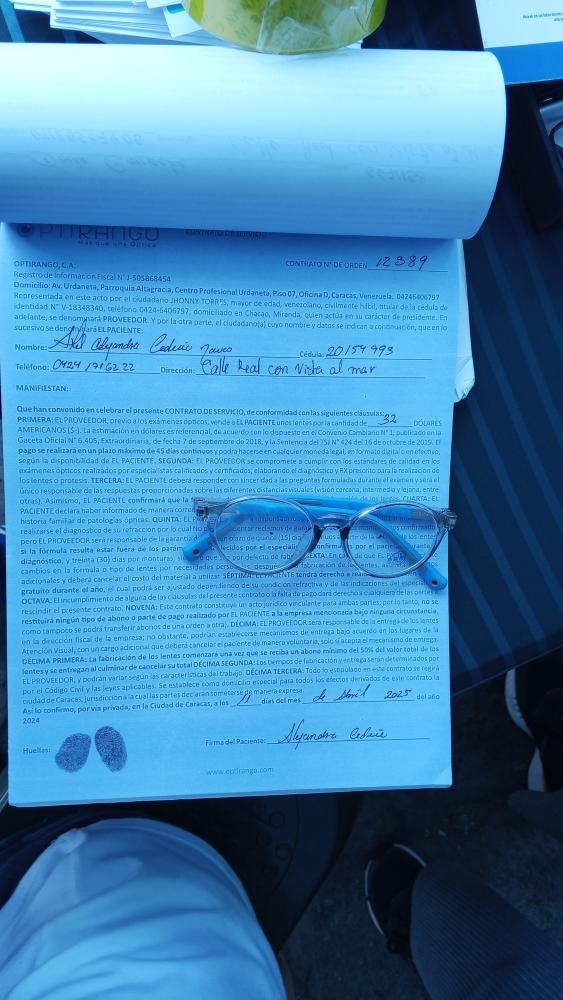 OPTIRANGO
Más que una Óptica
CONTRATO DE SERVICIO
OPTIRANGO, C.A.
CONTRATO N° DE ORDEN 12389
Registro de Información Fiscal N° J-505868454
Domicilio: Av. Urdaneta, Parroquia Altagracia, Centro Profesional Urdaneta, Piso 07, Oficina D, Caracas, Venezuela. 04246406797
Representada en este acto por el ciudadano JHONNY TORRES, mayor de edad, venezolano, civilmente hábil, titular de la cedula de
identidad N° V-18348340, teléfono 0424-6406797, domiciliado en Chacao, Miranda, quien actúa en su carácter de presidente. En
adelante, se denominará PROVEEDOR. Y por la otra parte, el ciudadano(a) cuyo nombre y datos se indican a continuación, que en lo
sucesivo se denominará EL PACIENTE:
Nombre: Alejandra Cedula: 20154993
Teléfono: 0424 Dirección: Calle Real con Vista al mar
MANIFIESTAN:
Que han convenido de celebrar el presente CONTRATO DE SERVICIO, de conformidad con las siguientes cláusulas:
PRIMERA: EL PROVEEDOR, previo a los exámenes ópticos, vende a EL PACIENTE unos lentes por la cantidad de 32 DÓLARES
AMERICANOS ($-). La estimación en dólares es referencial, de acuerdo con lo dispuesto en el Convenio Cambiario N° 1, publicado en la
Gaceta Oficial N° 6.405, Extraordinaria, de fecha 7 de septiembre de 2018, y la Sentencia del TSJ N° 424 del 16 de octubre de 2019. El
pago se realizará en un plazo máximo de 45 días continuos y podrá hacerse en cualquier moneda legal, en formato digital o en efectivo,
según la disponibilidad de EL PACIENTE. SEGUNDA: EL PROVEEDOR se compromete a cumplir con los estándares de calidad en los
exámenes ópticos realizados por especialistas calificados y certificados, elaborando el diagnóstico y RX prescrito para la realización de
los lentes o prótesis. TERCERA: EL PACIENTE deberá responder con sinceridad a las preguntas formuladas durante el examen y será el
único responsable de las respuestas proporcionadas sobre las diferentes distancias visuales (visión cercana, intermedia y lejana, entre
otras). Asimismo, EL PACIENTE confirmará que la de los lentes. CUARTA: EL
PACIENTE declara haber informado de manera
historia familiar de patologías ópticas. QUINTA:
realizarse el diagnostico de su refracción por lo cual
pero EL PROVEEDOR será responsable de la plazo de quince (15)
si la fórmula resulta estar fuera de los por el paciente durante
diagnostico, y treinta (30) días por monturas, por defecto de
cambios en la fórmula o tipo de lentes por necesidades
adicionales y deberá cancelar el costo del material a utilizar. SÉPTIMA: EL PACIENTE tendrá derecho a
gratuito durante el año, el cual podrá ser ajustado dependiendo de su condición refractiva y de las indicaciones del
OCTAVA: El incumplimiento de alguna de las cláusulas del presente contrato o la falta de pago dará derecho a cualquiera de las partes a
rescindir el presente contrato. NOVENA: Este contrato constituye un acto jurídico vinculante para ambas partes; por lo tanto, no se
restituirá ningún tipo de abono o parte de pago realizado por EL PACIENTE a la empresa mencionada bajo ninguna circunstancia,
como tampoco se podrá transferir abonos de una orden a otra). DÉCIMA: EL PROVEEDOR será responsable de la entrega de los lentes
en la dirección fiscal de la empresa; no obstante, podrían establecerse mecanismos de entrega bajo acuerdo en los lugares de la
Atención Visual, con un cargo adicional que deberá cancelar el paciente de manera voluntaria, solo si acepta el mecanismo de entrega.
DÉCIMA PRIMERA: La fabricación de los lentes comenzará una vez que se reciba un abono mínimo del 50% del valor total de los
lentes y se entregan al culminar de cancelar su total DÉCIMA SEGUNDA: Los tiempos de fabricación y entrega serán determinados por
EL PROVEEDOR, y podrán variar según las características del trabajo. DÉCIMA TERCERA: Todo lo estipulado en este contrato se regirá
por el Código Civil y las leyes aplicables. Se establece como domicilio especial para todos los efectos derivados de este contrato la
ciudad de Caracas, jurisdicción a la cual las partes declaran someterse de manera expresa.
Así lo confirmo, por vía privada, en la Ciudad de Caracas, a los 11 días del mes de Abril 2025 del año
2024
Huellas:
Firma del Paciente: Alejandra Cedeño
www.optirango.com